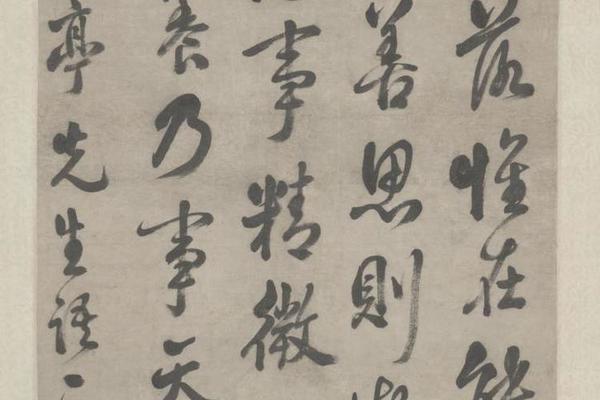 落惟在能
善思則
事精微
養乃事天
亭先生語